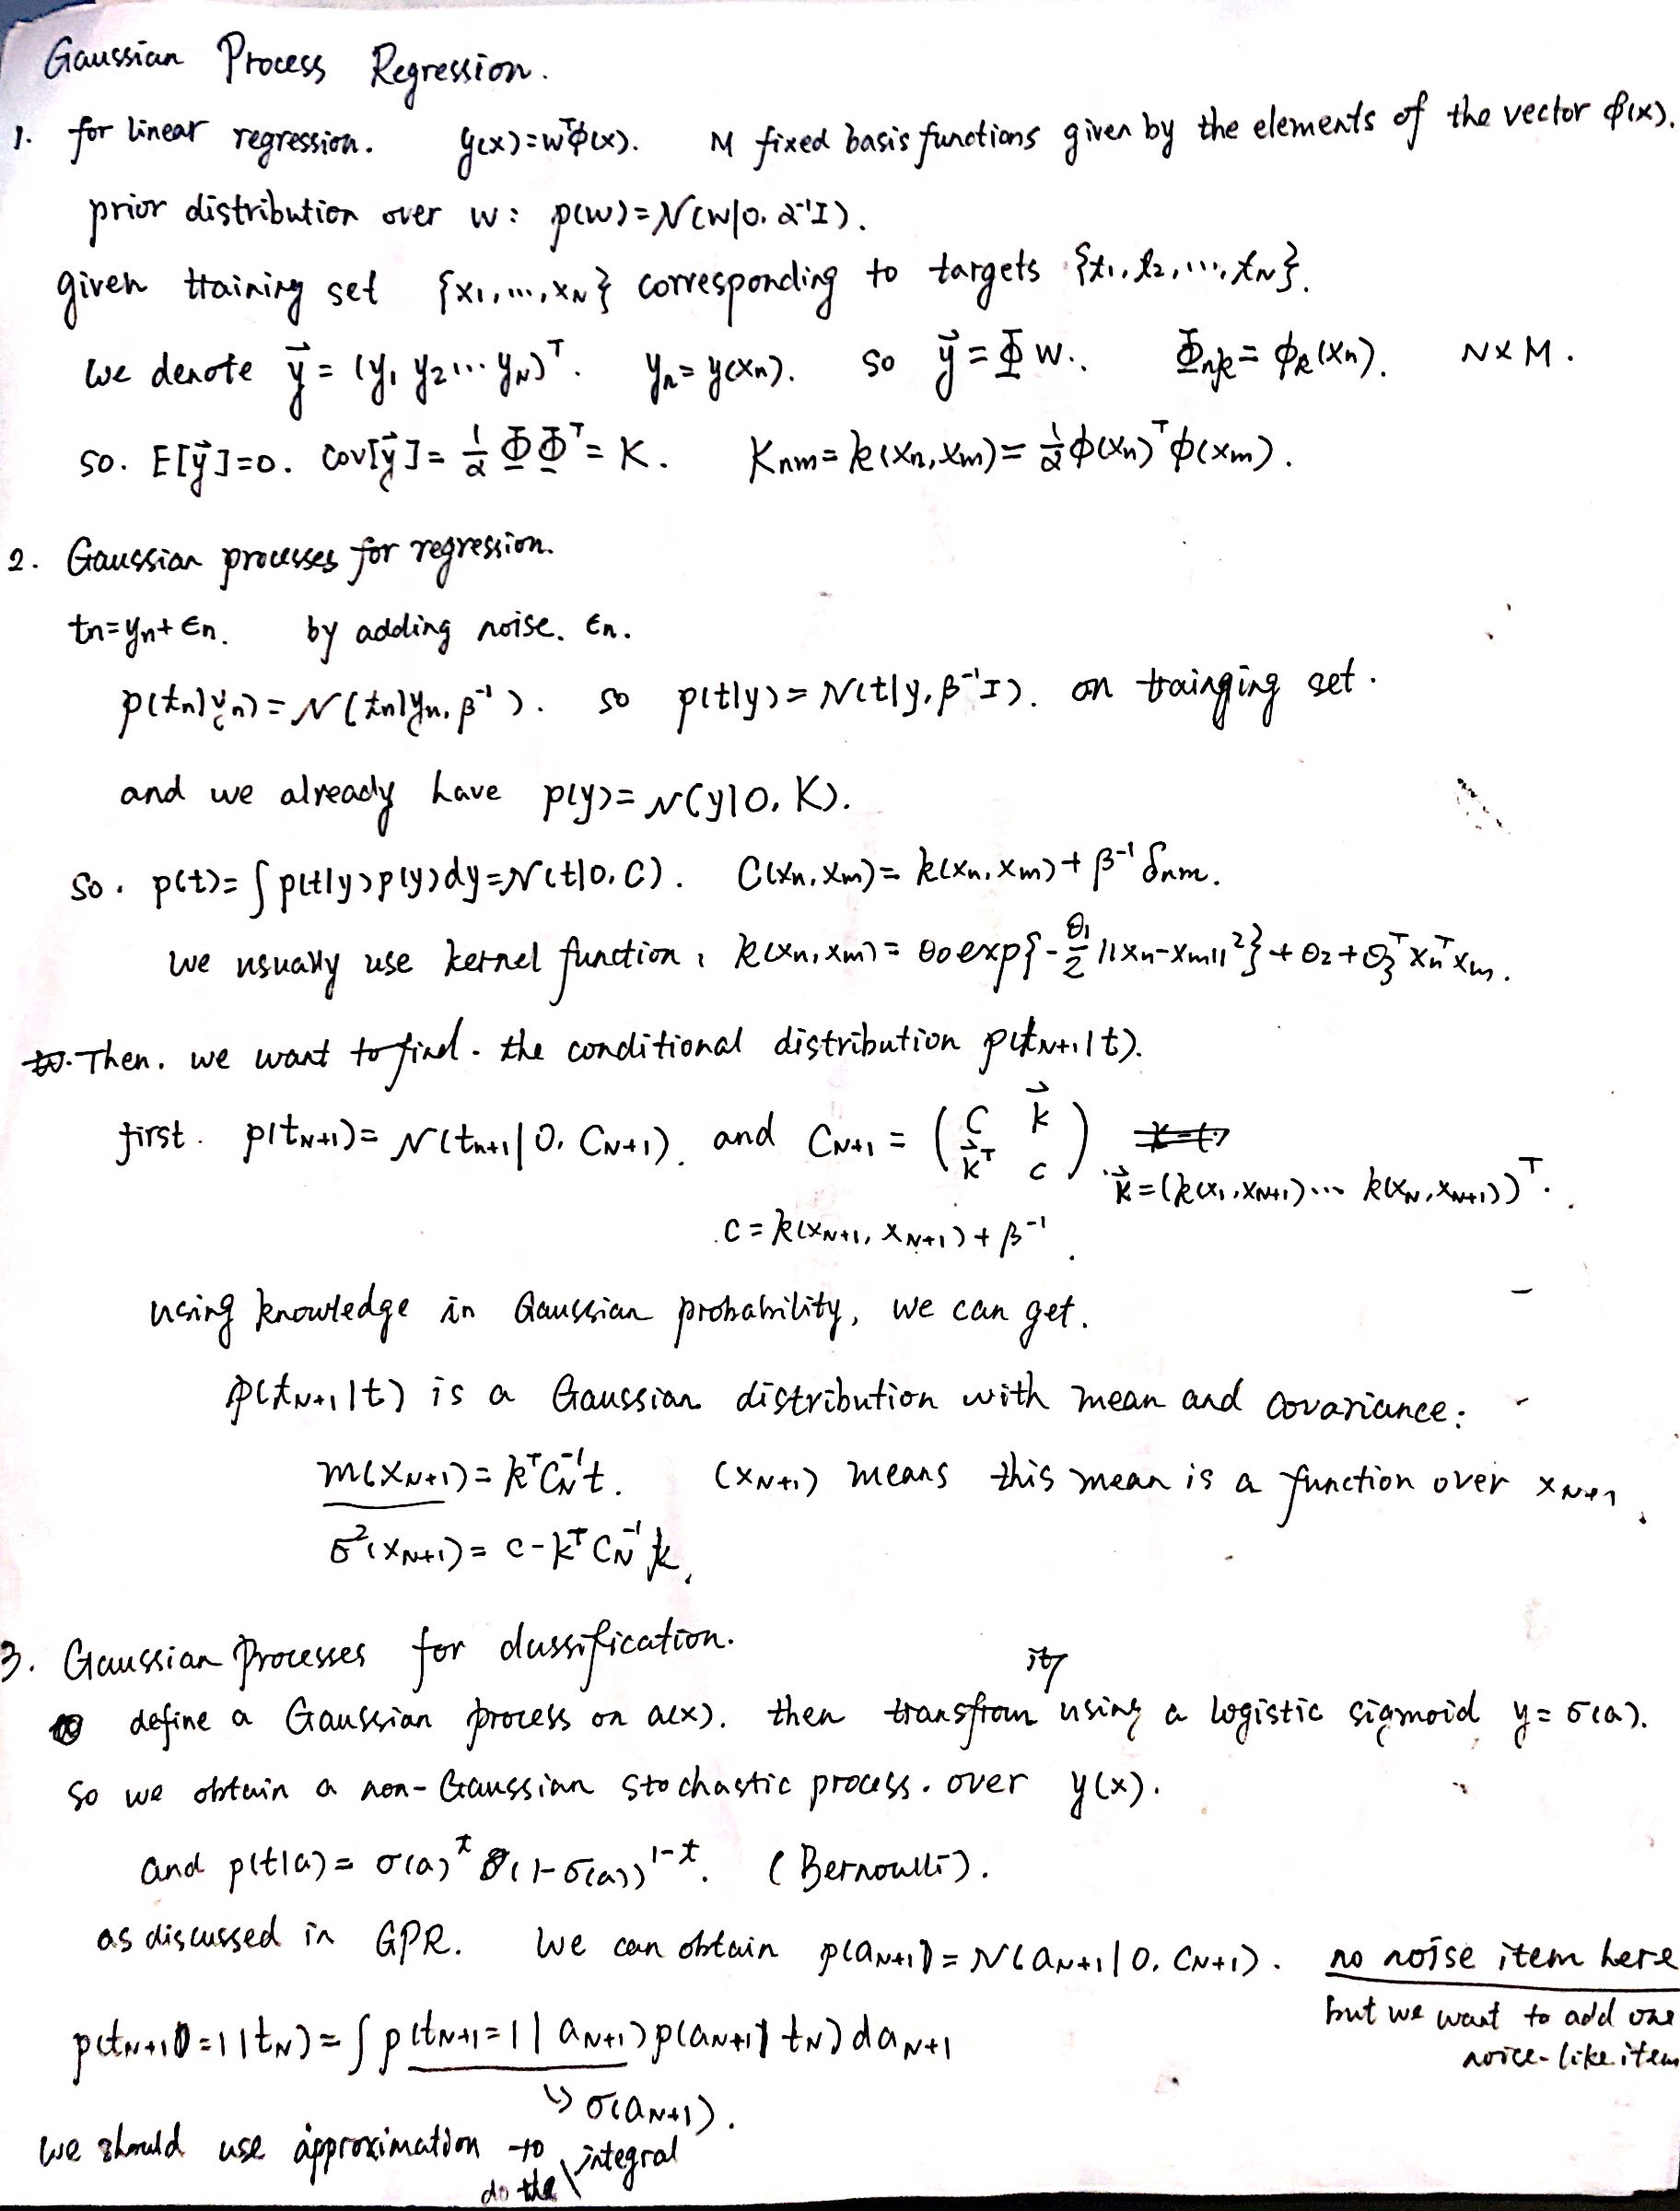 Gaussian Process Regression.
1. for linear regression. y(x)=wᵀϕ(x). M fixed basis functions given by the elements of the vector ϕ(x).
prior distribution over w: p(w)=N(w|0, α⁻¹I).
given training set {x₁,…,x_N} corresponding to targets {t₁,t₂,…,t_N}.
we denote y⃗ = (y₁ y₂… y_N)ᵀ. yₙ = y(xₙ). so y⃗ = Φw. Φₙₖ = ϕₖ(xₙ). N×M.
so. E[y⃗]=0. cov[y⃗]= 1/α ΦΦᵀ = K. Kₙₘ = k(xₙ,xₘ) = 1/α ϕ(xₙ)ᵀϕ(xₘ).
2. Gaussian processes for regression.
tₙ=yₙ+ϵₙ. by adding noise. ϵₙ.
p(tₙ|yₙ)=N(tₙ|yₙ, β⁻¹). so p(t|y)=N(t|y, β⁻¹I). on trainging set.
and we already have p(y)=N(y|0, K).
so. p(t)=∫p(t|y)p(y)dy=N(t|0, C). C(xₙ,xₘ)= k(xₙ,xₘ)+β⁻¹δₙₘ.
we usually use kernel function: k(xₙ,xₘ)= θ₀exp{-θ₁/2 ||xₙ-xₘ||²}+θ₂+θ₃ᵀxₙᵀxₘ.
Then. we want to find. the conditional distribution p(t_{N+1}|t).
first. p(t_{N+1})= N(t_{n+1}|0, C_{N+1}). and C_{N+1} = ( C k⃗ ; k⃗ᵀ c )
k⃗=(k(x₁,x_{N+1})… k(x_N,x_{N+1}))ᵀ.
c = k(x_{N+1}, x_{N+1})+β⁻¹.
using knowledge in Gaussian probability, we can get.
p(t_{N+1}|t) is a Gaussian distribution with mean and covariance:
m(x_{N+1})= kᵀC_N⁻¹t. (x_{N+1}) means this mean is a function over x_{N+1}.
σ²(x_{N+1})= c-kᵀC_N⁻¹k.
3. Gaussian Processes for classification.
define a Gaussian process on a(x). then transfrom it using a logistic sigmoid y=σ(a).
so we obtain a non-Gaussian stochastic process. over y(x).
and p(t|a)= σ(a)ᵗ(1-σ(a))¹⁻ᵗ. (Bernoulli).
as discussed in GPR. we can obtain p(a_{N+1})=N(a_{N+1}|0, C_{N+1}). no noise item here
but we want to add one
noice-like item
p(t_{N+1}=1|t_N)=∫p(t_{N+1}=1|a_{N+1})p(a_{N+1}|t_N)da_{N+1}
↳ σ(a_{N+1}).
we should use approximation to do the integral